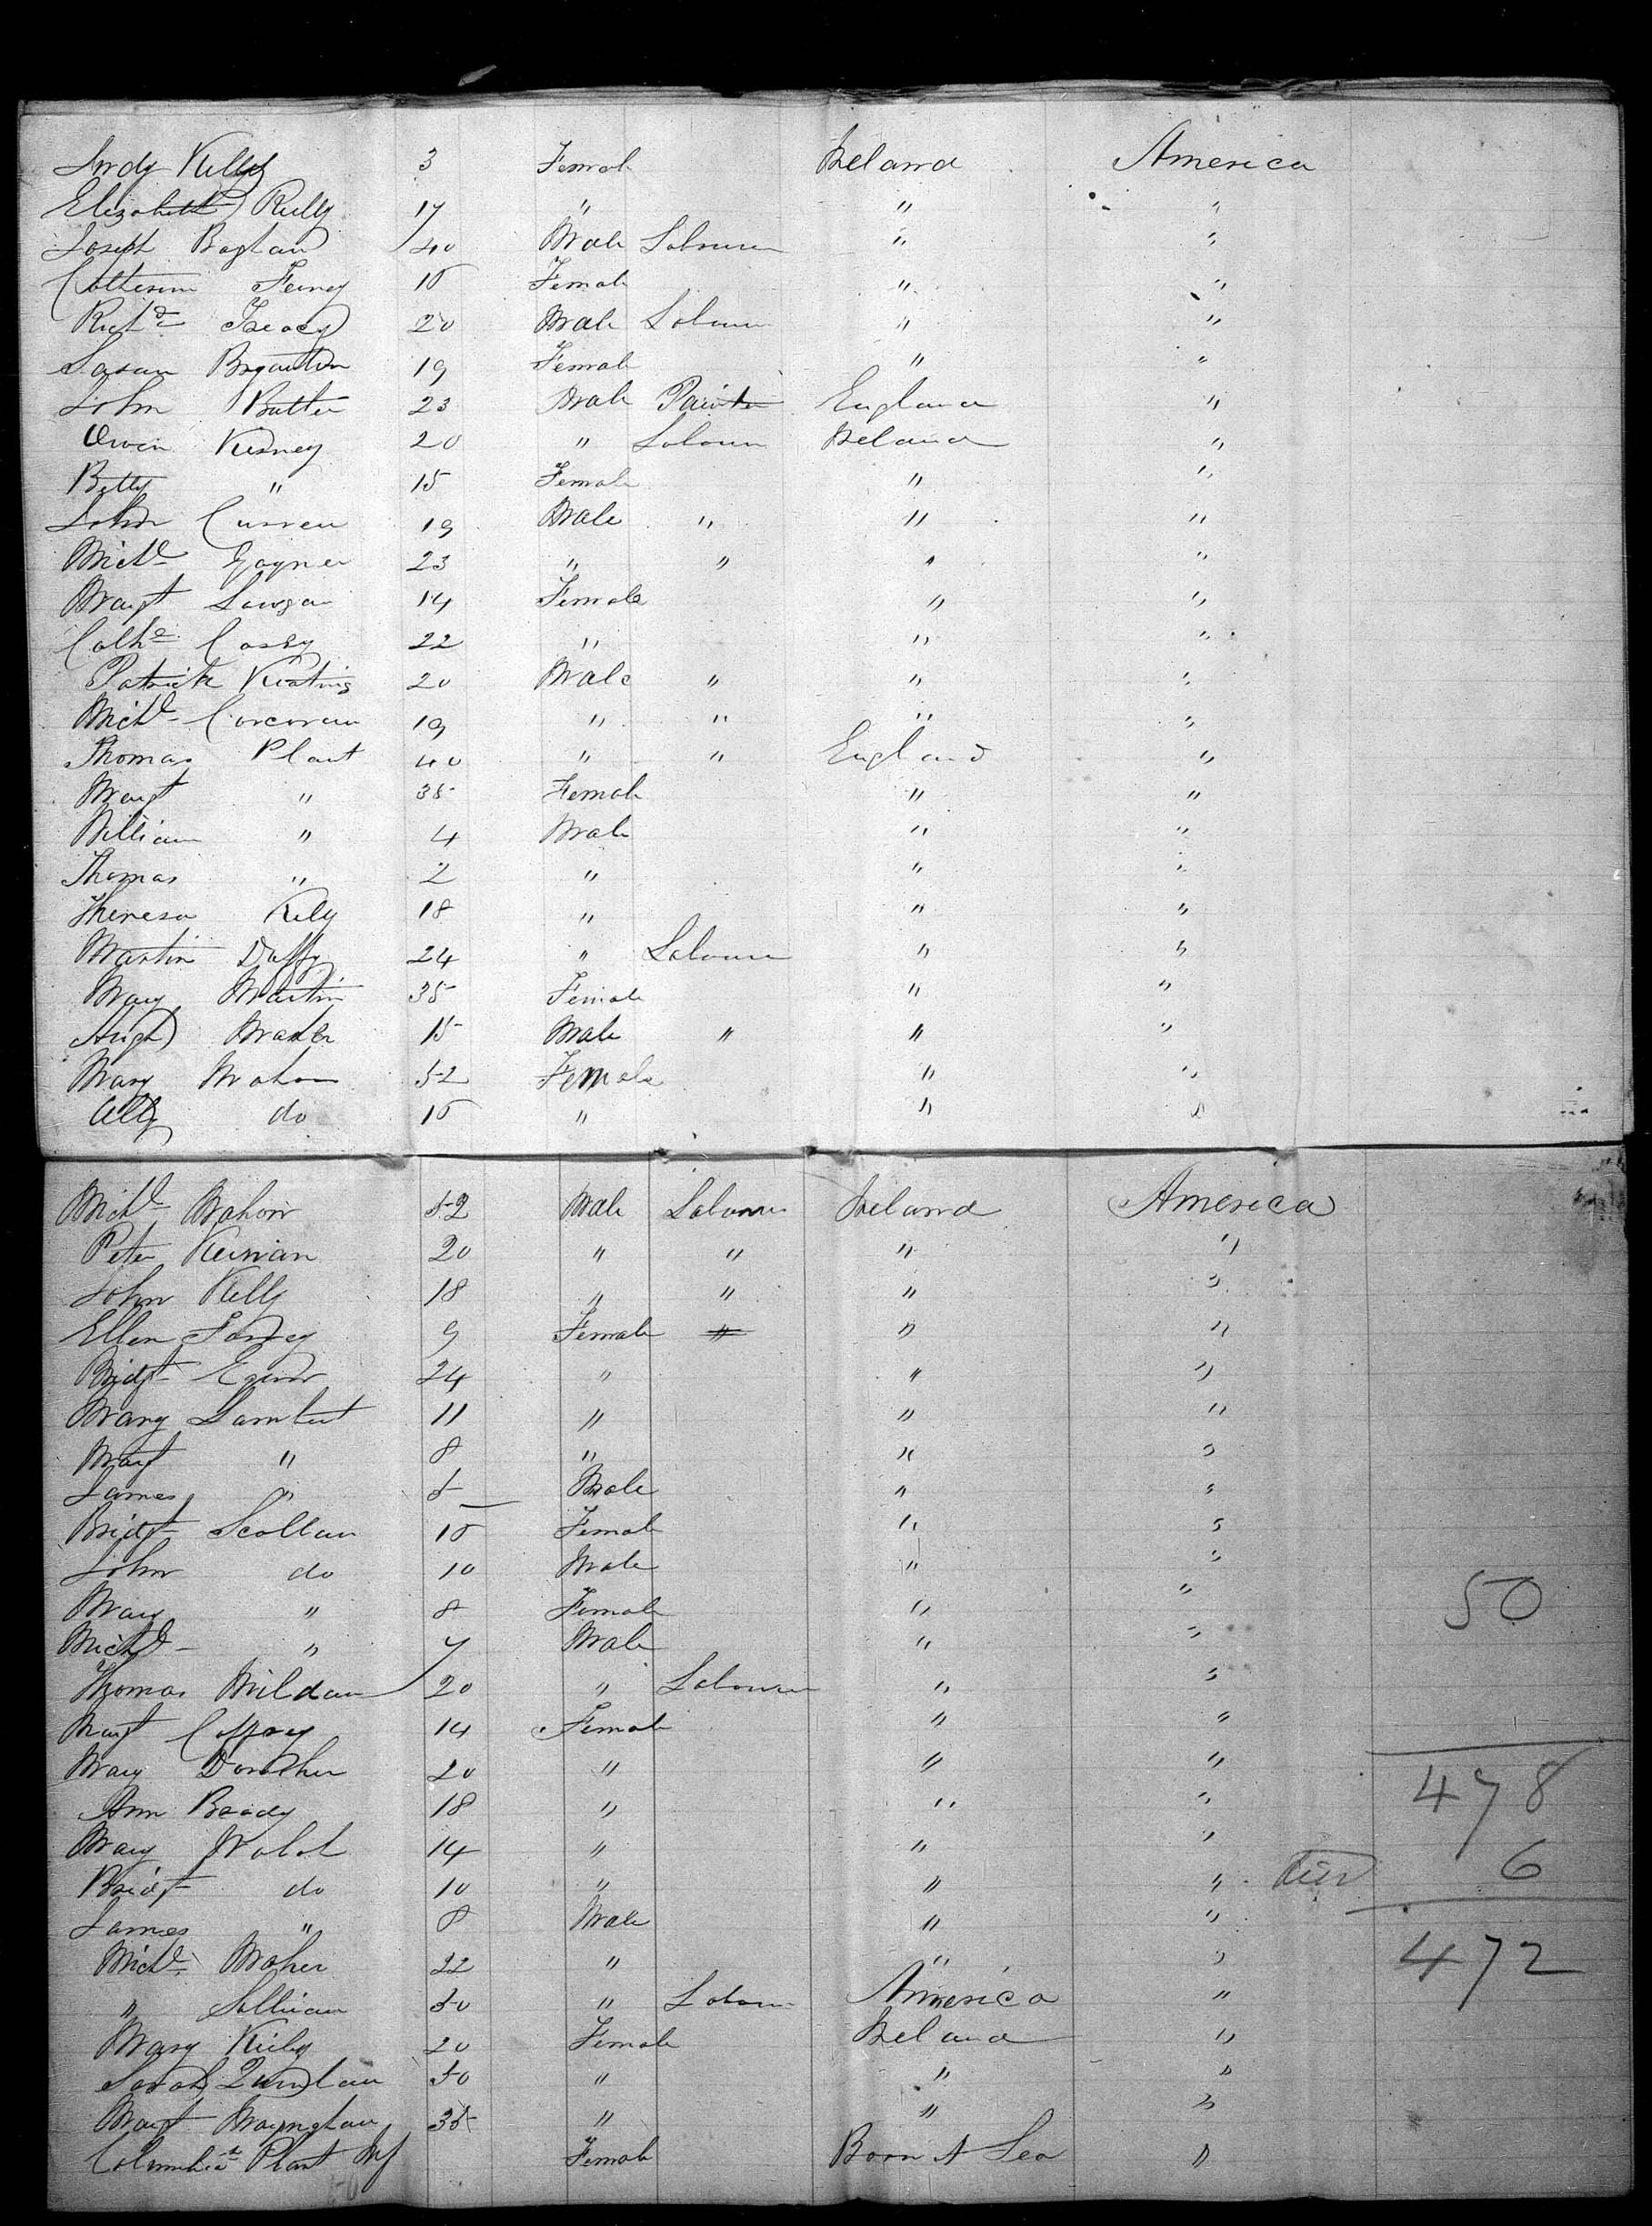 Andy Kelly 3 Female Ireland America
Elizabeth Reilly 17 " " "
Joseph 40 Male Labourer " "
Catherine Feeney 15 Female " "
Richd Treacy 20 Male Labourer " "
Susan 19 Female " "
John Butler 23 Male Painter England "
Owen Kerney 20 " Labourer Ireland "
Betty " 15 Female " "
John Curren 19 Male " " "
Michl 23 " " " "
Margt 14 Female " "
Cathe Casey 22 " " "
Patrick Keating 20 Male " " "
Michl Corcoran 19 " " " "
Thomas Plant 40 " " England "
Margt " 35 Female " "
William " 4 Male " "
Thomas " 2 " " "
Theresa 18 " " "
Martin Duffy 24 " Labourer " "
Mary Martin 35 Female " "
Hugh 15 Male " " "
Mary Mahon 52 Female " "
Ally do 15 " " "
Michl Mahon 52 Male Labourer Ireland America
Peter Keirnan 20 " " " "
John Kelly 18 " " " "
Ellen 9 Female " " "
Bridgt 24 " " "
Mary Lambert 11 " " "
Margt " 8 " " "
James " 5 Male " "
Bridgt Scollan 15 Female " "
John do 10 Male " "
Mary " 8 Female " " 50
Michl " 7 Male " "
Thomas 20 " Labourer " "
Margt Caffrey 14 Female " "
Mary 20 " " " 478
Ann Brady 18 " " "
Mary Walsh 14 " " " 6
Bridgt do 10 " " "
James " 8 Male " "
Michl Maher 22 " " " 472
" Sullivan 50 " Labourer America "
Mary 20 Female Ireland "
Sarah Quinlan 50 " " "
Margt 35 " " "
Columbia Plant Inf Female Born At Sea "